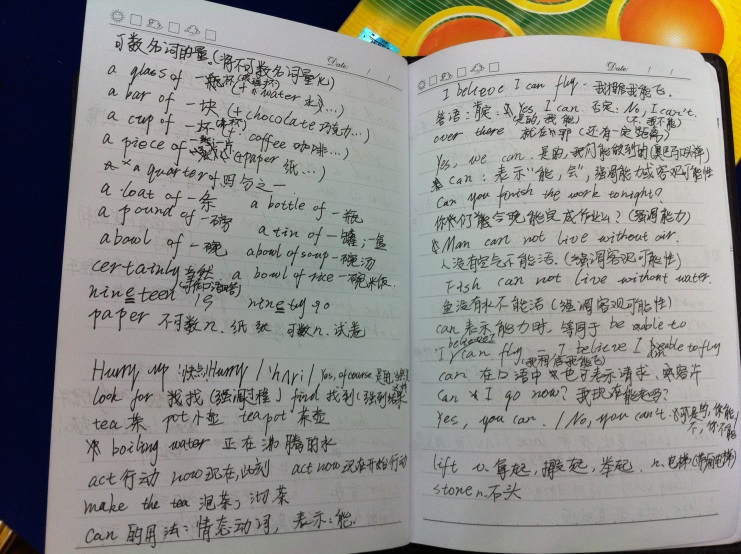 Date / /
可数名词的量.(将不可数名词量化)
a glass of 一瓶杯(玻璃杯)(+water 水...)
a bar of 一块 (+chocolate 巧克力...)
a cup of 一杯 (+ coffee 咖啡...)
a piece of (+paper 纸...)
a quarter of 四分之一
a loat of 一条 a bottle of 一瓶
a pound of 一磅 a tin of 一罐;一盒
abowl of 一碗 abowl of soup 一碗汤
certainly 当然 a bowl of rice 一碗米饭.
nineteen 19 ninety 90
paper 不可数n. 纸张 可数n. 试卷
Hurry up 快点! Hurry /'hʌri/ Yes, of course 是的,当然
look for 找找(强调过程) find 找到(强调结果
tea 茶 pot 小壶 teapot 茶壶
boiling water 正在沸腾的水
act 行动 now 现在,此刻 act now 现在开始行动
make the tea 泡茶,沏茶
can 的用法:情态动词,表示:能.
Date / /
I believe I can fly. 我相信我能飞.
答语:肯定: Yes, I can. 否定: No, I can't.
(是的,我能) (不,我不能)
over there 就在那 (还有一定距离)
Yes, we can. 是的,我们能做到的(奥巴马)
can: 表示"能,会",强调能力或客观可能性
Can you finish the work tonight?
你们今晚能完成作业么?(强调能力)
Man can not live without air.
人没有空气不能活.(强调客观可能性)
Fish can not live without water.
鱼没有水不能活(强调客观可能性)
can 表示能力时,等同于 be auble to
believe
I can fly — I believe I beable to fly
(我相信我能飞)
can 在口语中也可表示请求,或容许
Can I go now? 我现在能走吗?
Yes, you can. / No, you can't. 可是的,你能/不,你不能
lift v. 拿起,搬起,举起. n. 电梯
stone n. 石头